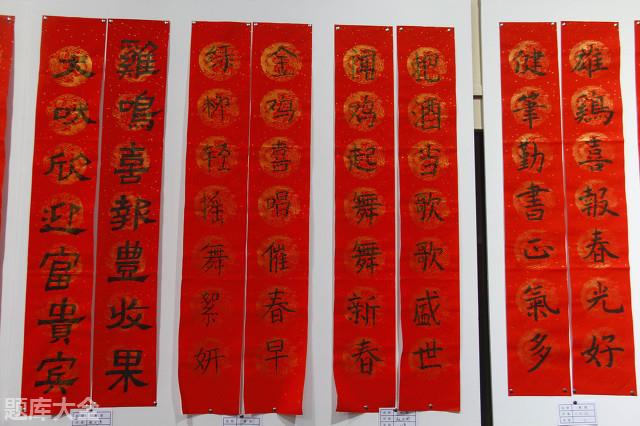 雞鳴喜報豐收果
犬吠欣迎富貴宾
金鸡喜唱催春早
绿柳轻摇舞絮妍
把酒当歌歌盛世
闻鸡起舞舞新春
雄鶏喜報春光好
健筆勤書正氣多
题库大全